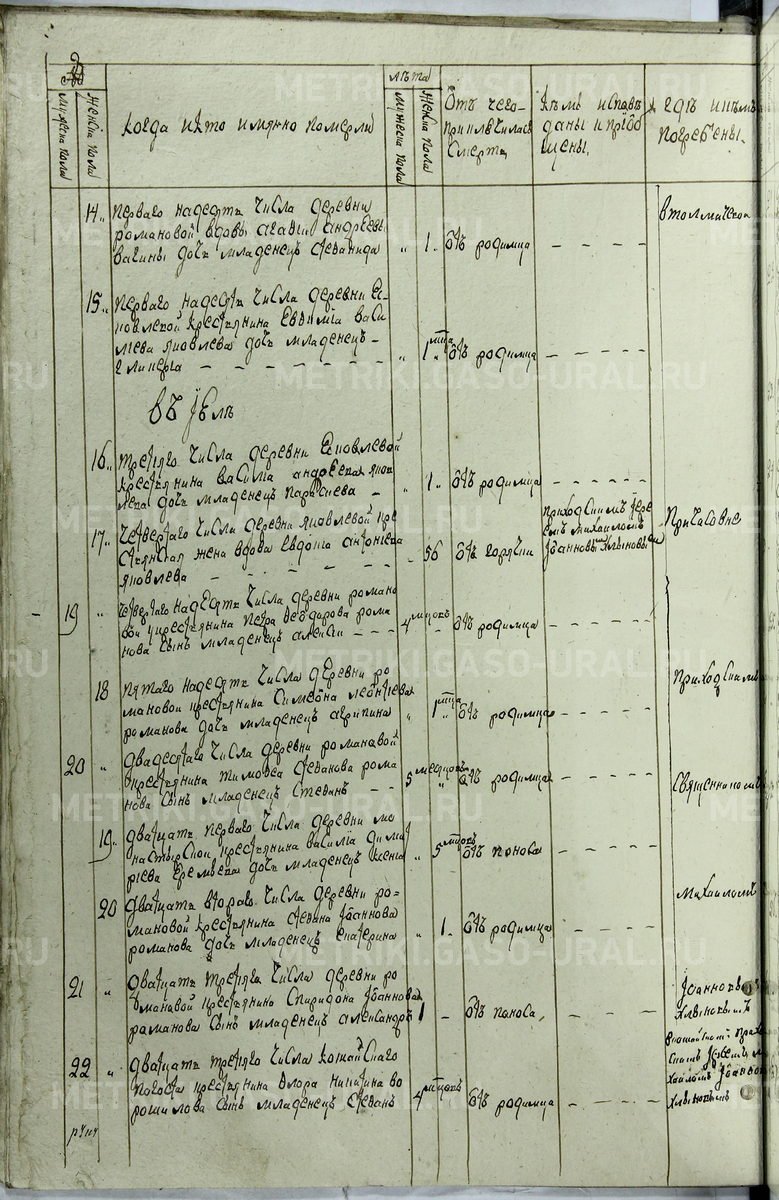 мужеска пола
женска пола
когда и кто имянно померли
лѣта
мужеска пола
женска пола
отъ чего
приключилася
смерть
кѣмъ исповѣ
даны и прiоб
щены
гдѣ и кѣмъ
погребены.
14 первагонадесять числа деревни
романовой вдовы агафiи андреевы
дочь младенецъ стефанида
1 отъ родимца
15 первагонадесять числа деревни
яковлевой крестьянина васи
лiева яковлева дочь младенецъ
гликерiа
1 мца отъ родимца
въ iюлѣ
16 третьяго числа деревни яковлевой
крестьянина василiа андреева яков
лева дочь младенецъ
1 отъ родимца
17 четвертаго числа деревни яковлевой кре
стьянская жена вдова евдокiа антонiева
яковлева
56 отъ горячки
приходскимъ iере
емъ михаиломъ
iоанновымъ
при часовне
19 четвертагонадесять числа деревни романо
вой крестьянина петра феодорова рома
нова сынъ младенецъ алексiй
4 мцовъ отъ родимца
18 пятагонадесять числа деревни ро
мановой крестьянина симеона леонтiева
романова дочь младенецъ агрипина
1 мца отъ родимца
приходскимъ
20 двадесятаго числа деревни романовой
крестьянина тимофеа стефанова рома
нова сынъ младенецъ стефанъ
5 месяцовъ отъ родимца
священникомъ
19 дватцать перваго числа деревни мо
настырской крестьянина василiа дими
трiева еремеева дочь младенецъ ксенiа
5 мцовъ отъ поноса
20 дватцать втораго числа деревни ро
мановой крестьянина стефана iоаннова
романова дочь младенецъ екатерина
1 отъ родимца
михаиломъ
21 дватцать третьяго числа деревни ро
мановой крестьянина спиридона iоаннова
романова сынъ младенецъ александръ
1 отъ поноса
iоанновымъ
22 дватцать третьяго числа
погоста крестьянина флора никитина во
рошилова сынъ младенецъ стефанъ
4 мцовъ отъ родимца
METRIKI.GASO-URAL.RU